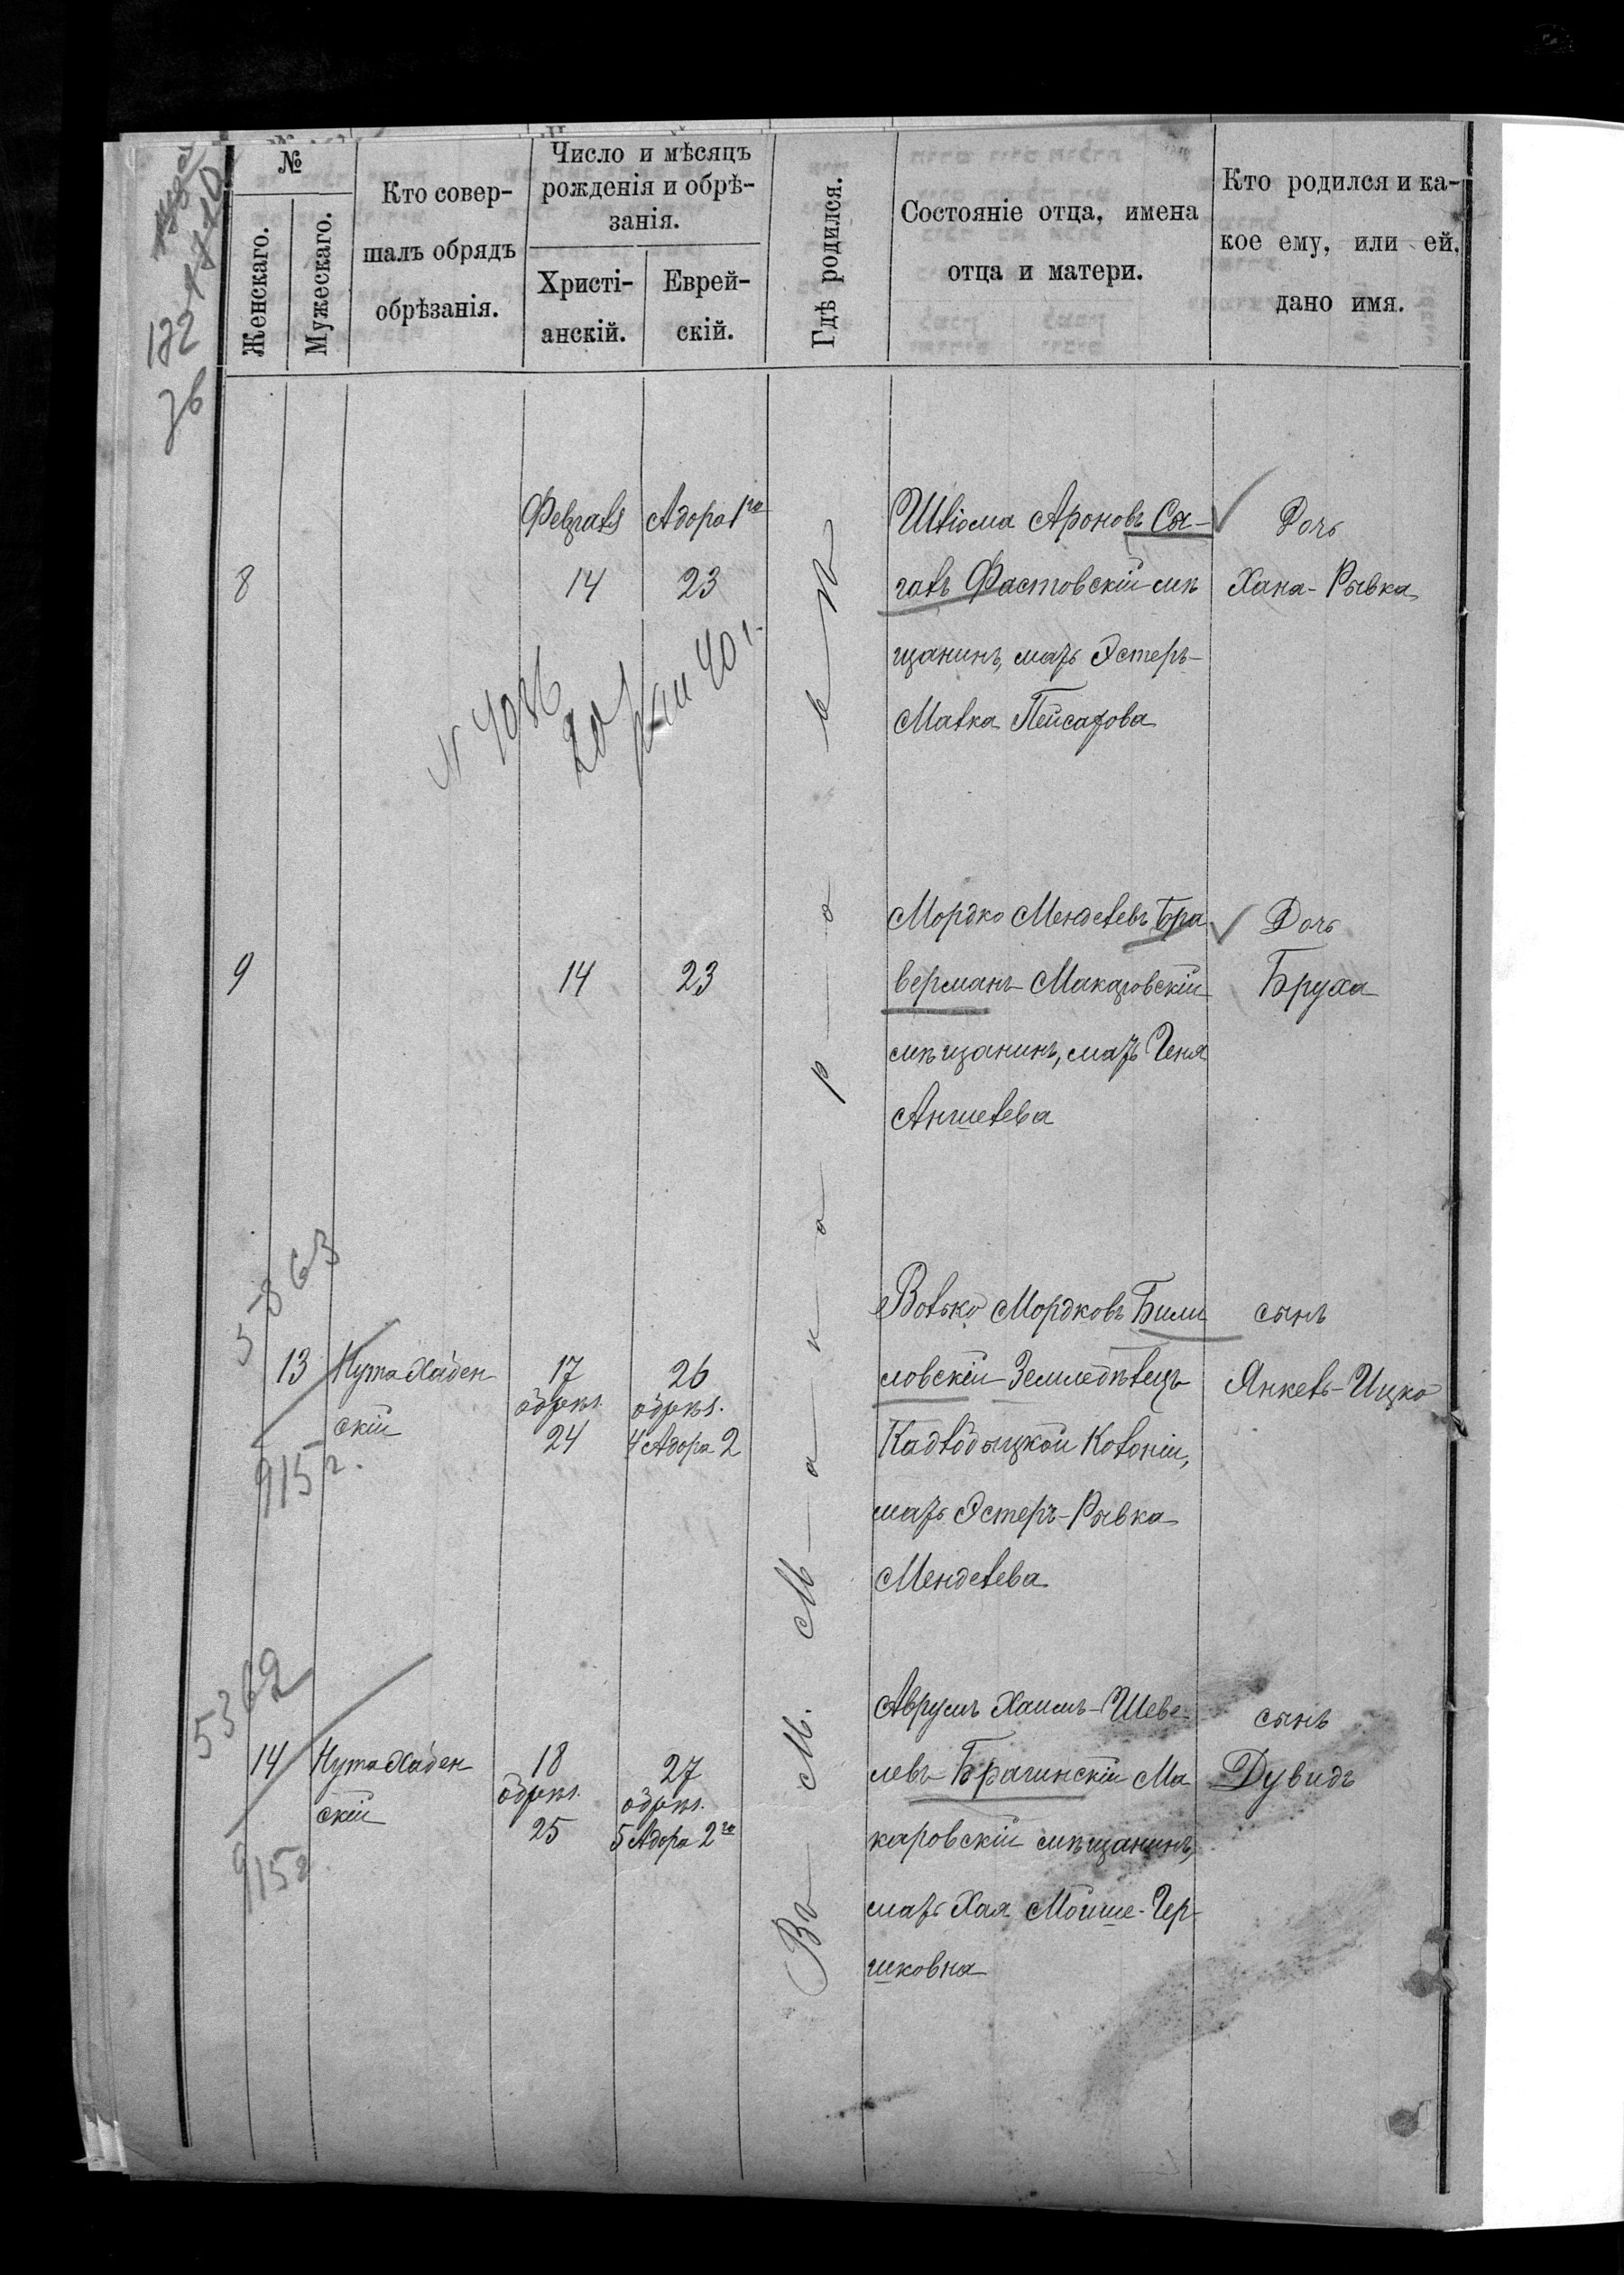 №
Женскаго.
Мужескаго.
Кто совер-
шалъ обрядъ
обрѣзанія.
Число и мѣсяцъ
рожденія и обрѣ-
занія.
Христі-
анскій.
Еврей-
скій.
Гдѣ родился.
Состояніе отца, имена
отца и матери.
Кто родился и ка-
кое ему, или ей,
дано имя.
122
Въ М. Макаровѣ
Февраль
Адора 1го
8
14
23
Шліома Ароновъ Сы-
галъ Фастовскій мѣ
щанинъ, мать Эстеръ-
Малка Пейсахова
Дочь
Хана-Рывка
9
14
23
Мордко Менделевъ Бра
верманъ Макаровскій
мѣщанинъ, мать Геня
Аншелева
Дочь
Бруха
13
Нута Хабен
скій
17
обрѣз.
24
26
обрѣз.
4 Адора 2
Волько Мордковъ Били
ловскій Земледѣлецъ
Кадлобыцкой Колоніи,
мать Эстеръ-Рывка
Менделева
сынъ
Янкель-Ицко
915 г.
5362
14
Нута Хабен
скій
18
обрѣз.
25
27
обрѣз.
5 Адора 2го
Аврумъ Хаимъ-Шеве-
левъ Брагинскій Ма
каровскій мѣщанинъ,
мать Хая Мойше-Гер-
шковна
сынъ
Дувидъ
915 г.